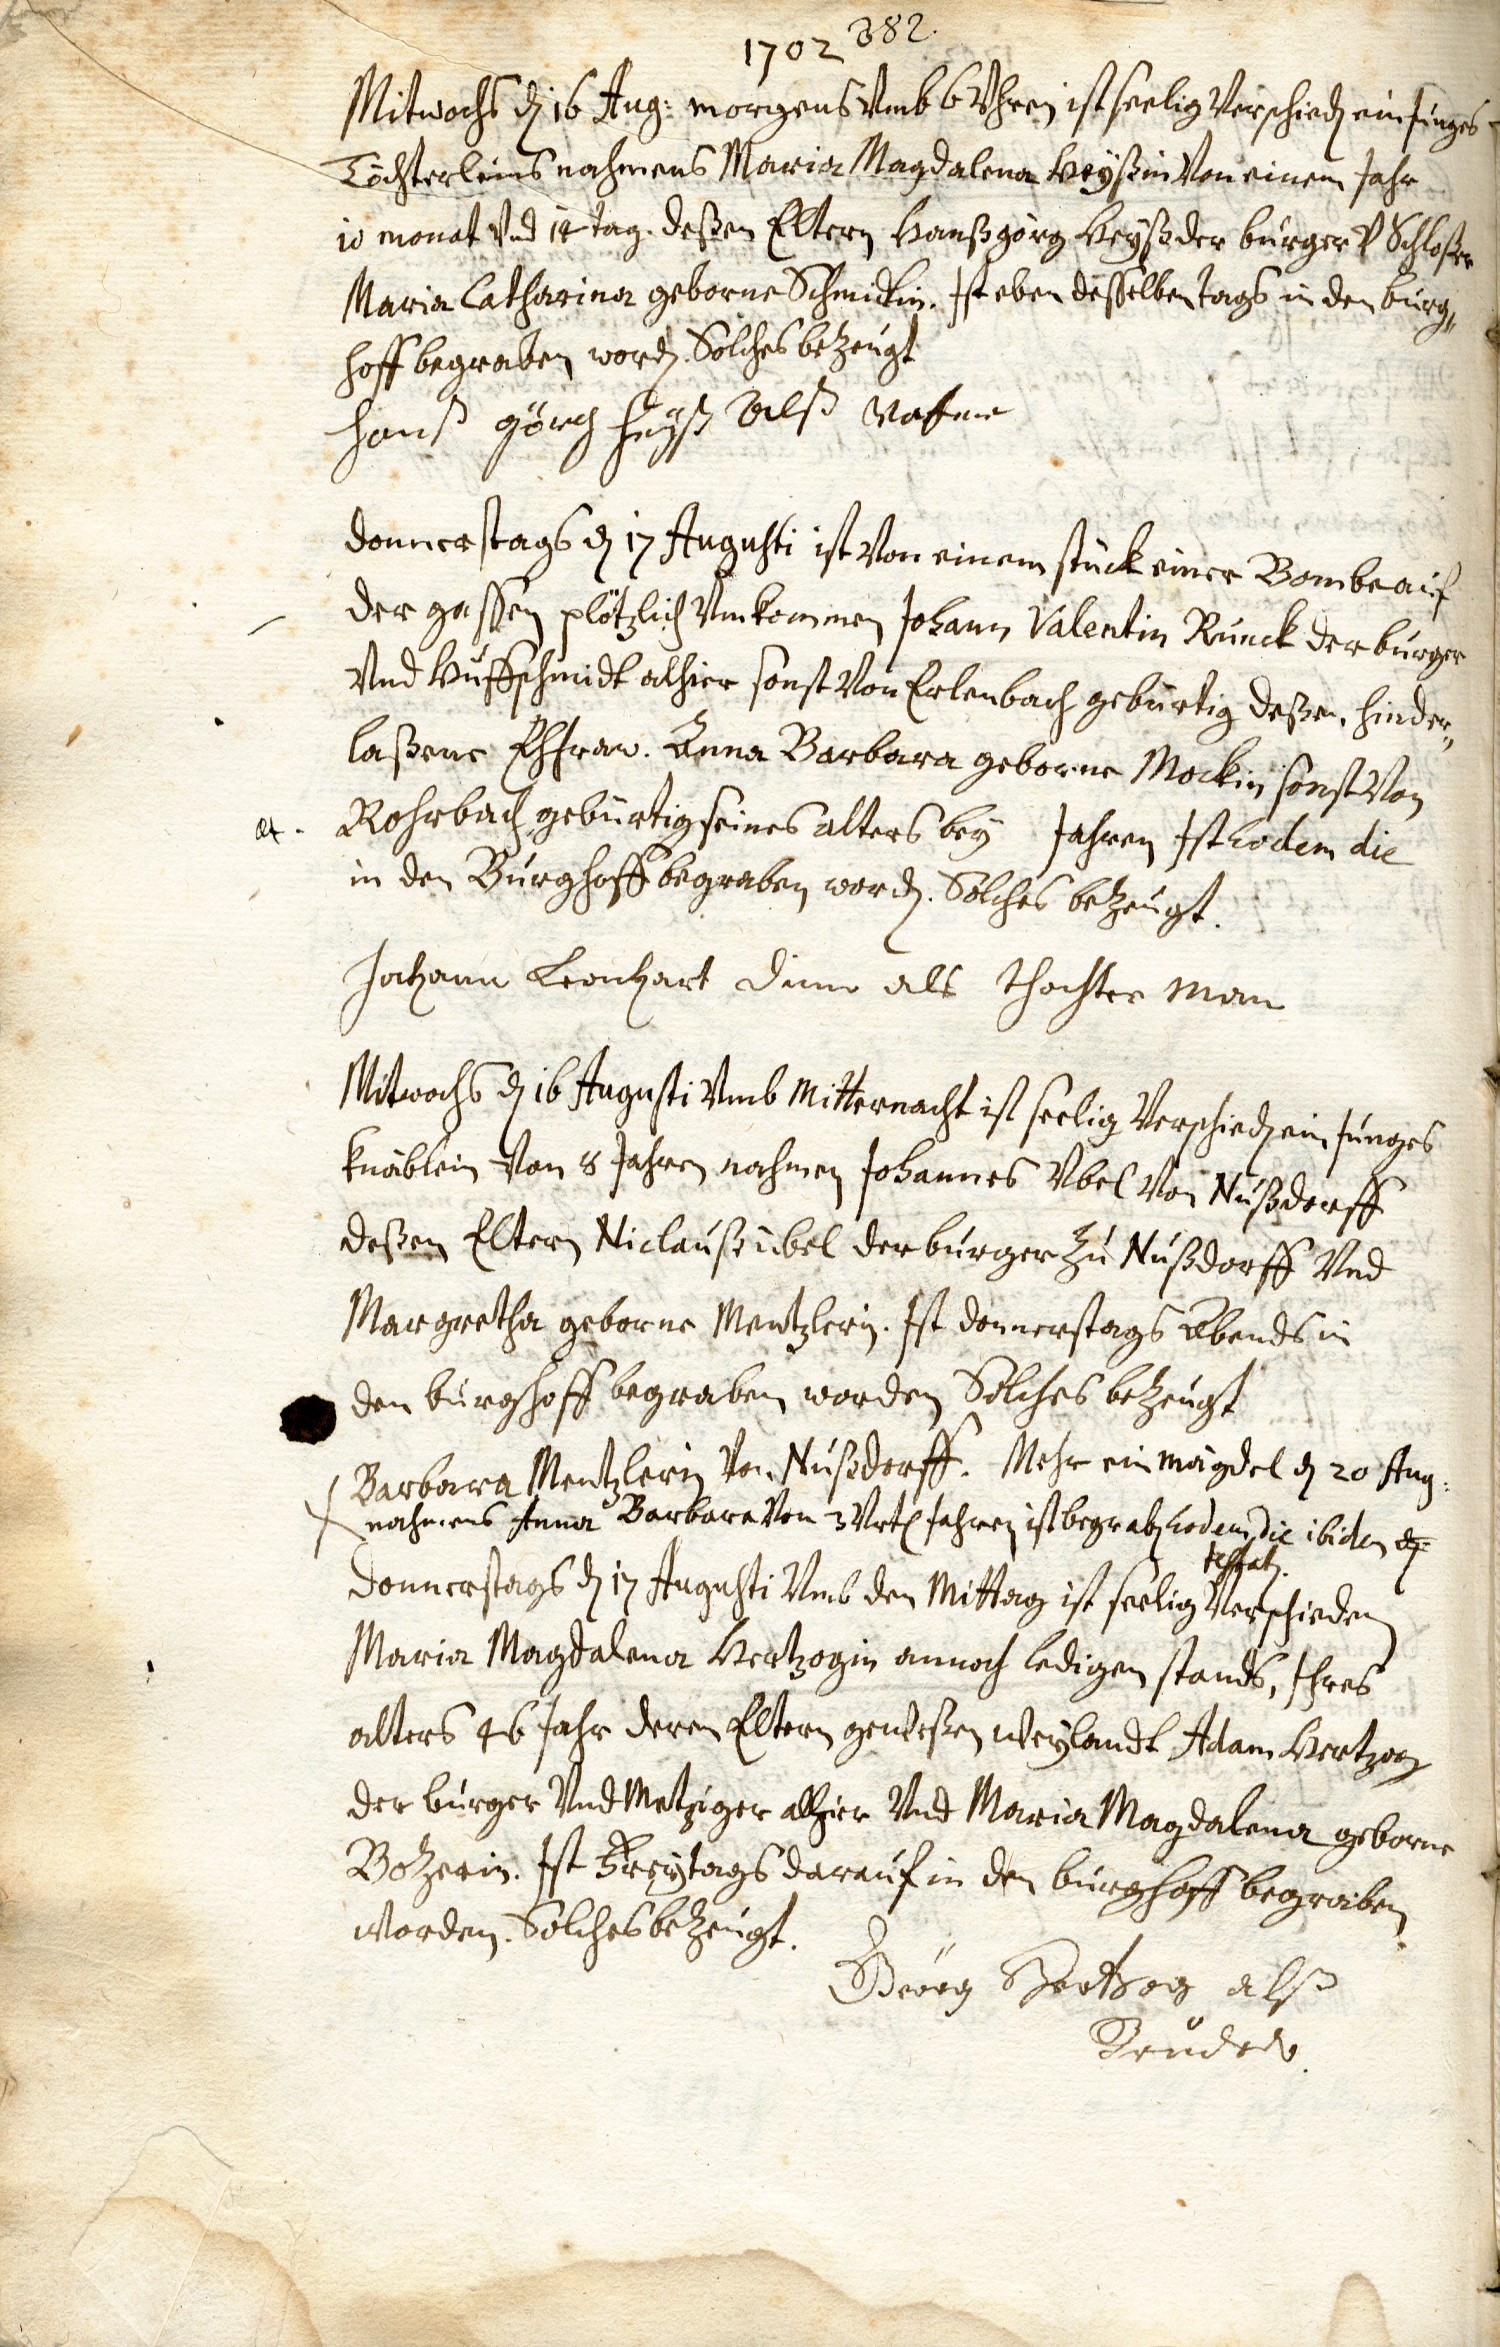 1702 382.
Mitwochs dȝ 16 Aug: morgens Vmb 6 Vhren ist seelig Verschiedȝ ein junges
Töchterleins nahmens Maria Magdalena Heyßin Von einem Jahr
10 monat Vnd 14 tag. deßen Eltern Hanßgörg Heyß der burger V Schloßer
Maria Catharina geborne Schmidtin. Ist eben deßelben tags in den burg„
hoff begraben wordȝ. Solches bezeugt
Hanß görg Heyß Alß Vatter
Donnerstags dȝ 17 Augusti ist Von einem stück einer Bombe auf
der gassen plötzlich Vmkommen Johann Valentin Runck der burger
Vnd Huffschmidt alhier sonst Von Erlenbach gebürtig deßen hinder„
laßene Ehfraw. Anna Barbara geborne Mockin sonst Von
Rohrbach gebürtig seines alters bey Jahren Ist Eodem die
in den Burghoff begraben wordȝ. Solches bezeugt.
Johann Leonhart Dim als thochter man
Mitwochs dȝ 16 Augusti Vmb Mitternacht ist seelig Verschiedȝ ein junges
knäblein Von 8 Jahren nahmen Johannes Vbel Von Nußdorff
deßen Eltern Niclauß übel der burger zu Nußdorff Vnd
Margretha geborne Mentzlerin. Ist Donnerstags Abends in
den burghoff begraben worden Solches bezeugt
Barbara Mentzlerin Von Nußdorff. Mehr ein mägdel dȝ 20 Aug:
nahmens Anna Barbara Von 3 Vrtl Jahren ist begrabȝ Eodem die ibidem
testatȝ.
Donnerstags dȝ 17 Augusti Vmb den Mittag ist seelig Verschieden
Maria Magdalena Hertzogin annoch ledigen stands, Ihres
alters 46 Jahr deren Eltern geweßen Weylandt Adam Hertzog
der burger Vnd Metziger alhier Vnd Maria Magdalena geborne
Bozerin. Ist Freytags darauf in den burghoff begraben
worden. Solches bezeugt.
Georg Hertzog alß
Bruder.